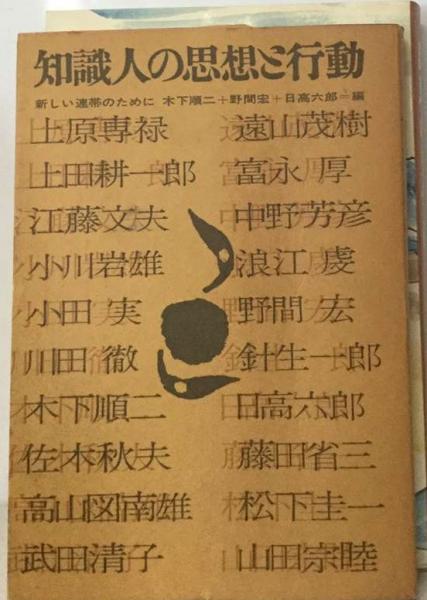 知識人の思想と行動
新しい連帯のために 木下順二+野間宏+日高六郎=編
上原専禄
上田耕一郎
江藤文夫
小川岩雄
小田 実
川田 徹
木下順二
佐木秋夫
高山図南雄
武田清子
遠山茂樹
富永 厚
中野芳彦
浪江 虔
野間 宏
針生一郎
日高六郎
藤田省三
松下圭一
山田宗睦